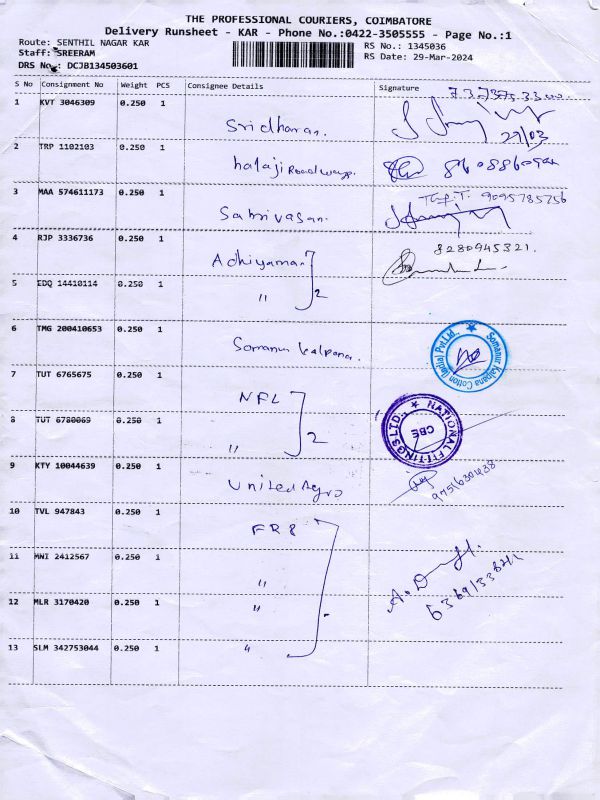 THE PROFESSIONAL COURIERS, COIMBATORE
Delivery Runsheet - KAR - Phone No.:0422-3505555 - Page No.:1
Route: SENTHIL NAGAR KAR
RS No.: 1345036
Staff: SREERAM
RS Date: 29-Mar-2024
DRS No.: DCJB134503601
S No Consignment No Weight PCS Consignee Details Signature
1 KVT 3046309 0.250 1 Sridharan.
29/03
2 TRP 1102103 0.250 1 balaji Roadways.
3 MAA 574611173 0.250 1 9095785756
4 RJP 3336736 0.250 1 Adhiyaman 8280945321.
5 EDQ 14410114 0.250 1 " 2
6 TMG 200410653 0.250 1 Somanur kalpana.
Somanur Kalpana Cotton (India) Pvt.Ltd., ★
7 TUT 6765675 0.250 1 NFL
8 TUT 6780069 0.250 1 " 2
★ NATIONAL FITTINGS LTD., CBE
9 KTY 10044639 0.250 1 United Agro
10 TVL 947843 0.250 1 FR8
11 MNI 2412567 0.250 1 "
12 MLR 3170420 0.250 1 "
13 SLM 342753044 0.250 1 "